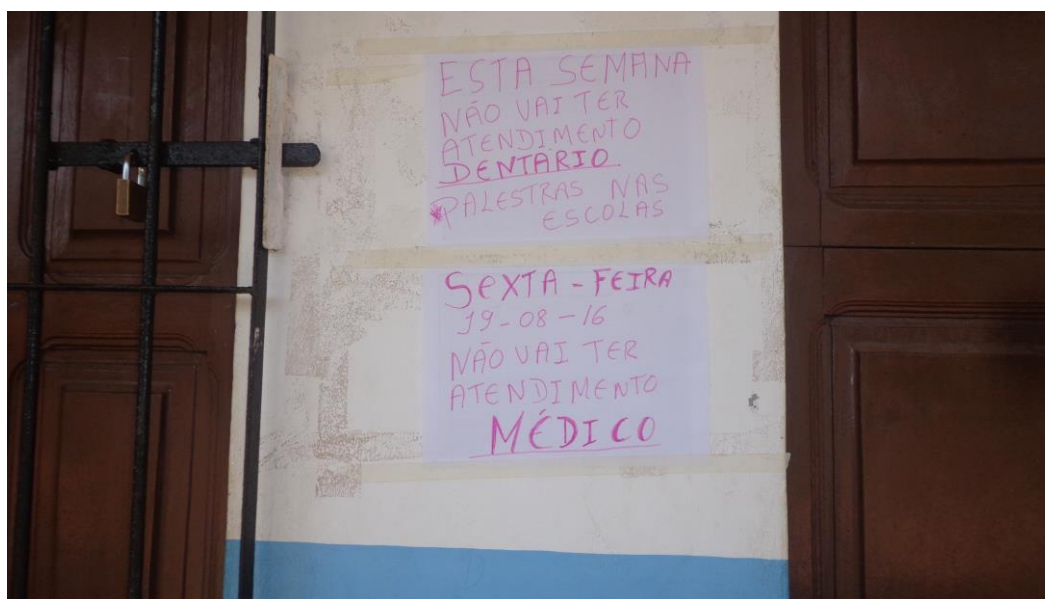 ESTA SEMANA
NÃO VAI TER
ATENDIMENTO
DENTÁRIO
*PALESTRAS NAS
ESCOLAS
SEXTA-FEIRA
19-08-16
NÃO VAI TER
ATENDIMENTO
MÉDICO